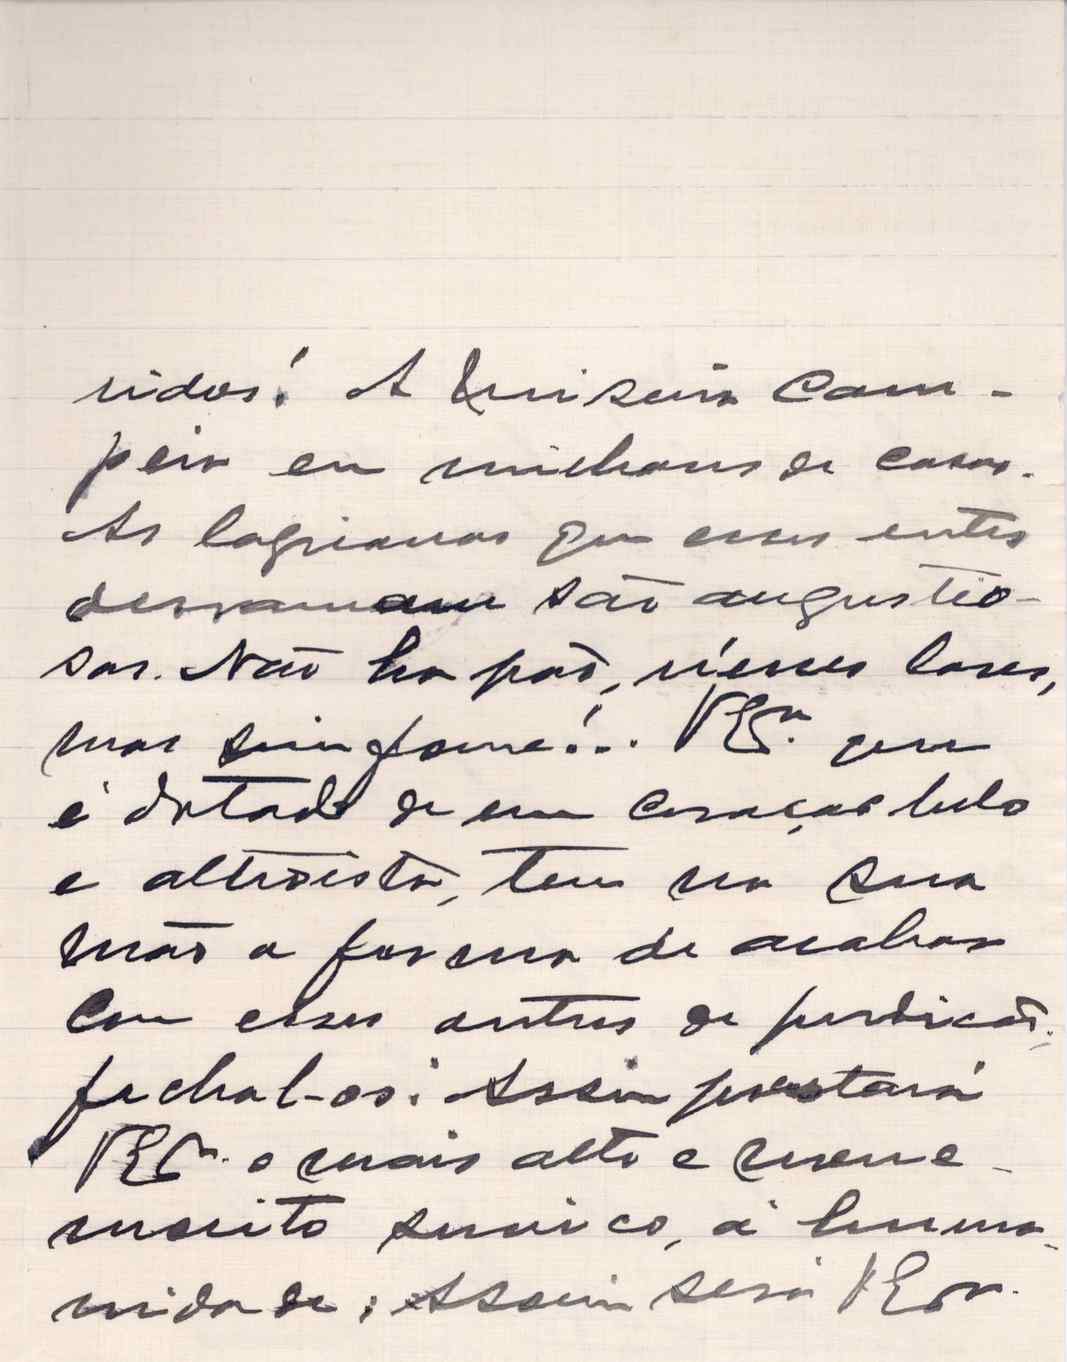 ridos! A miseria cam-
peia em milhares de casas.
As lagrimas que esses entes
derramam são angustio-
sas. Não ha pão, n'esses lares,
mas sim fome!... V Exª. que
é dotado de um coração belo
e altroista, tem na sua
mão a forma de acabar
com esses antros de perdicão:
fechal-os! Assim prestará
V Exª. o mais alto e bene-
merito servico, á huma-
nidade; Assim será V Exª.